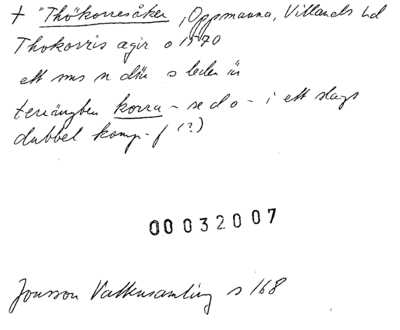 + "Thökorresåker, Oppmanna, Villands hd
Thokorris agir o 1570
ett ms n där s leden är
terrängben korra - se d o - i ett slags
dubbel komp. f (?)
00032007
Jonsson Vattensamling s 168